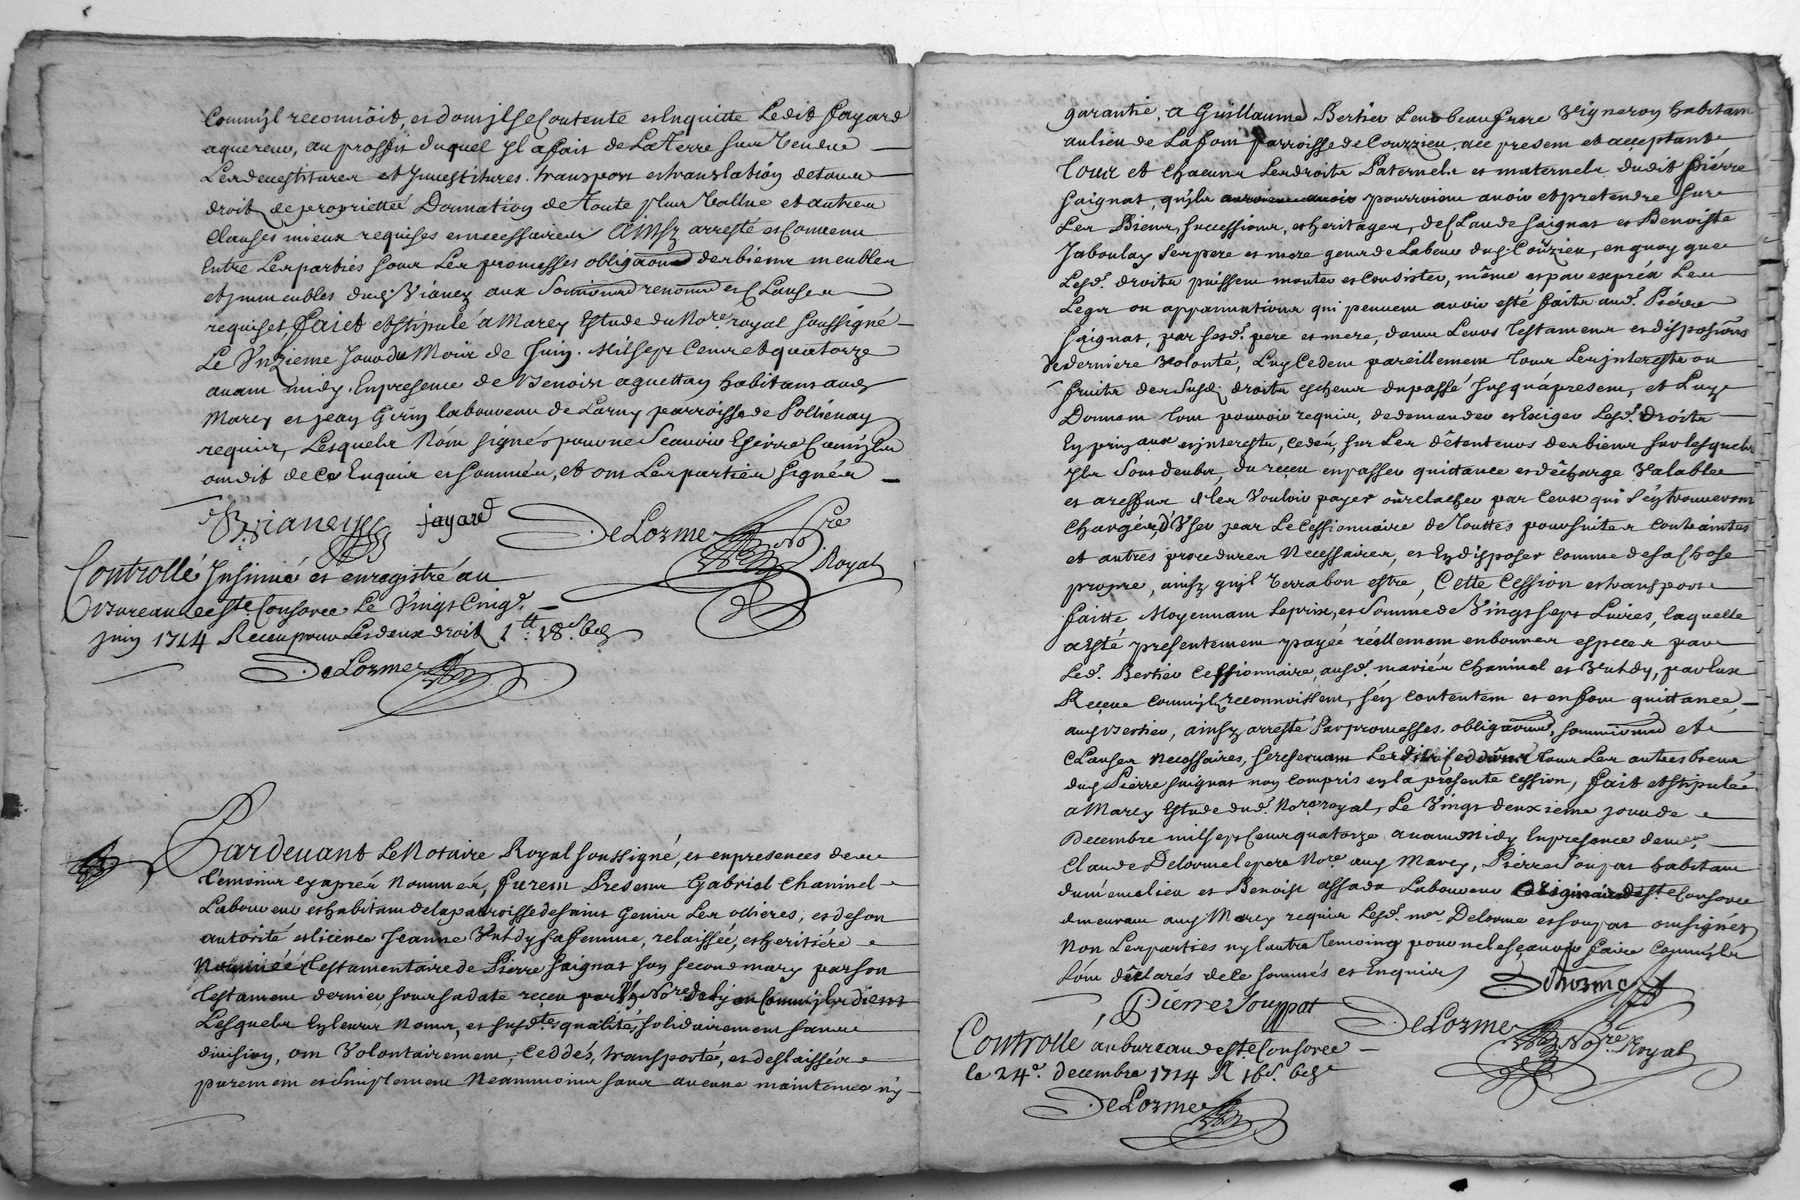 Comm'jl reconnôit, et dom jl se Contente et Enquitte Ledit fayard
aquereur, au proffit duquel Jl a fait de La Terre sur Vendue
Les devestitures et Jnvestitures. transport et translation de tous
droits de proprietteé Donnation de toute plus Vallue et autres
Clauses mieux requises et necessaires Ainsy arresté et Convenu
Entre Les parties sous Les promesses obligaons des biens meubles
et jmmeubles dud. Vianey aux renons et Clauses
requises, faict et stipulé a Marcy Estude du No.re royal soussigné
Le Vnzieme Jour du Mois de Juin. Mil sept Cens et quatorze
avant midy. En presence de Benoist aguettan habitans aud.
Marcy et jean Girin laboureur de Larny parroisse de Pollienay
requis, Lesquels N'ont signés pour ne Scavoir Escrire Comm'jls
ont dit de ce Enquis et sommés, et ont Les parties signés
Vianey fayard DeLorme No.re Royal
Controllé Jnsinué et enregistré au
Bureau de ste. Consorce Le Vingt Cinq.
juin 1714 Receu pour Les deux droits 1tt. 18s. 6d
DeLorme
Pardevant Le Notaire Royal soussigné, et en presences des
témoins cy aprés Nommés, furent Presens Gabriel Chaninel
Laboureur et habitant de la parroisse de saint Genis Les ollieres, et de son
autorité et licence Jeanne Vuldy sa femme, relaissée, et heritiére
Testamentaire de Pierre Saignat son second mary par son
testament dernier sous sa date receu par No.re Comm'jls dient
Lesquels En leurs Noms, et susd.tes qualités, solidairement sans
division, ont Volontairement, Ceddés, transportés, et deslaissés
purement et simplement Neanmoins sans aucune maintenue n'y
garantie, a Guillaume Bertier Leur beau frere Vigneron habitant
au lieu de La font parroisse de Courzieu, ace present et acceptant
tour et chacuns Les droits Paternels et maternels dudit Piérre
Saignat, qu'jls pourroient avoir et pretendre sur
Les Biens, successions, et heritages, de Claude Saignat et Benoiste
Jaboulay ses pere et mere gens de Labeur dud. Coûrzieu, en quoy que
Lesd. droits puissent monter et Consister, même et par exprés Les
Legs ou appanations qui peuvent avoir esté faits aud. Piérre
Saignat, par sesd. pere et mere, dans Leurs testamens et disposions
de derniere Volonté, Luy Cedent pareillement tous Les jnterests ou
fruits des susd. droits escheus du passé jusqu'á present, et Luy
Donnent tout pouvoir requis, de demander et Exiger Lesd. droits
En prin.aux et jnterests, cedés, sur Les détenteurs des biens sur lesquels
jls Sont deubs, du receu en passer quittance et décharge Valable
et a reffus d'les Vouloir payer ou relacher par Ceux qui s'en trouveront
Chargés, d'Vser par Le Cessionnaire de touttes poursuites Contraintes
et autres procedures Necessaires, et En disposer Comme de sa chose
propre, ainsy qu'jl Verra bon estre, Cette Cession et transport
faitte Moyennant Le prix, et Somme de Vingt sept Livres, laquelle
a esté presentement payeé réellement en bonnes especes par
Led. Bertier Cessionnaire ausd. mariés Chaninel et Vuldy, par Eux
Receue Comm'jls reconnoissent, s'en contentent et en font quittance,
aud. Bertier, ainsy arresté Par promesses. obligaons, soumions et
Clauses necessaires, se reservant Les tous Les autres biens
dud. Pierre Saignat non Compris En la presente Cession, fait et stipulé
a Marcy Estude dud. No.re royal, Le Vingt deuxieme jour de
Decembre mil sept Cens quatorze avant Midy En presence de me.
Claude Delorme le pere No.re aud. Marcy, Pierre Soupat habitans
du même lieu et Benoist assada Laboureur de ste Consorce
dmeurant aud. Marcy requis Lesd. nor. Delorme et soupat ont signés
Non Les parties n'y l'autre temoing pour ne le sçavoir faire Comm'jls
L'ont déclarés de ce sommés et Enquis
Delorme
Pierre Souppat DeLorme No.re Royal
Controllé au bureau de ste. Consorce
le 24e. decembre 1714 R 16s. 6d
DeLorme